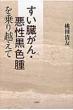 桃田清友
すい臓がん・
悪性黒色腫
を乗り越えて